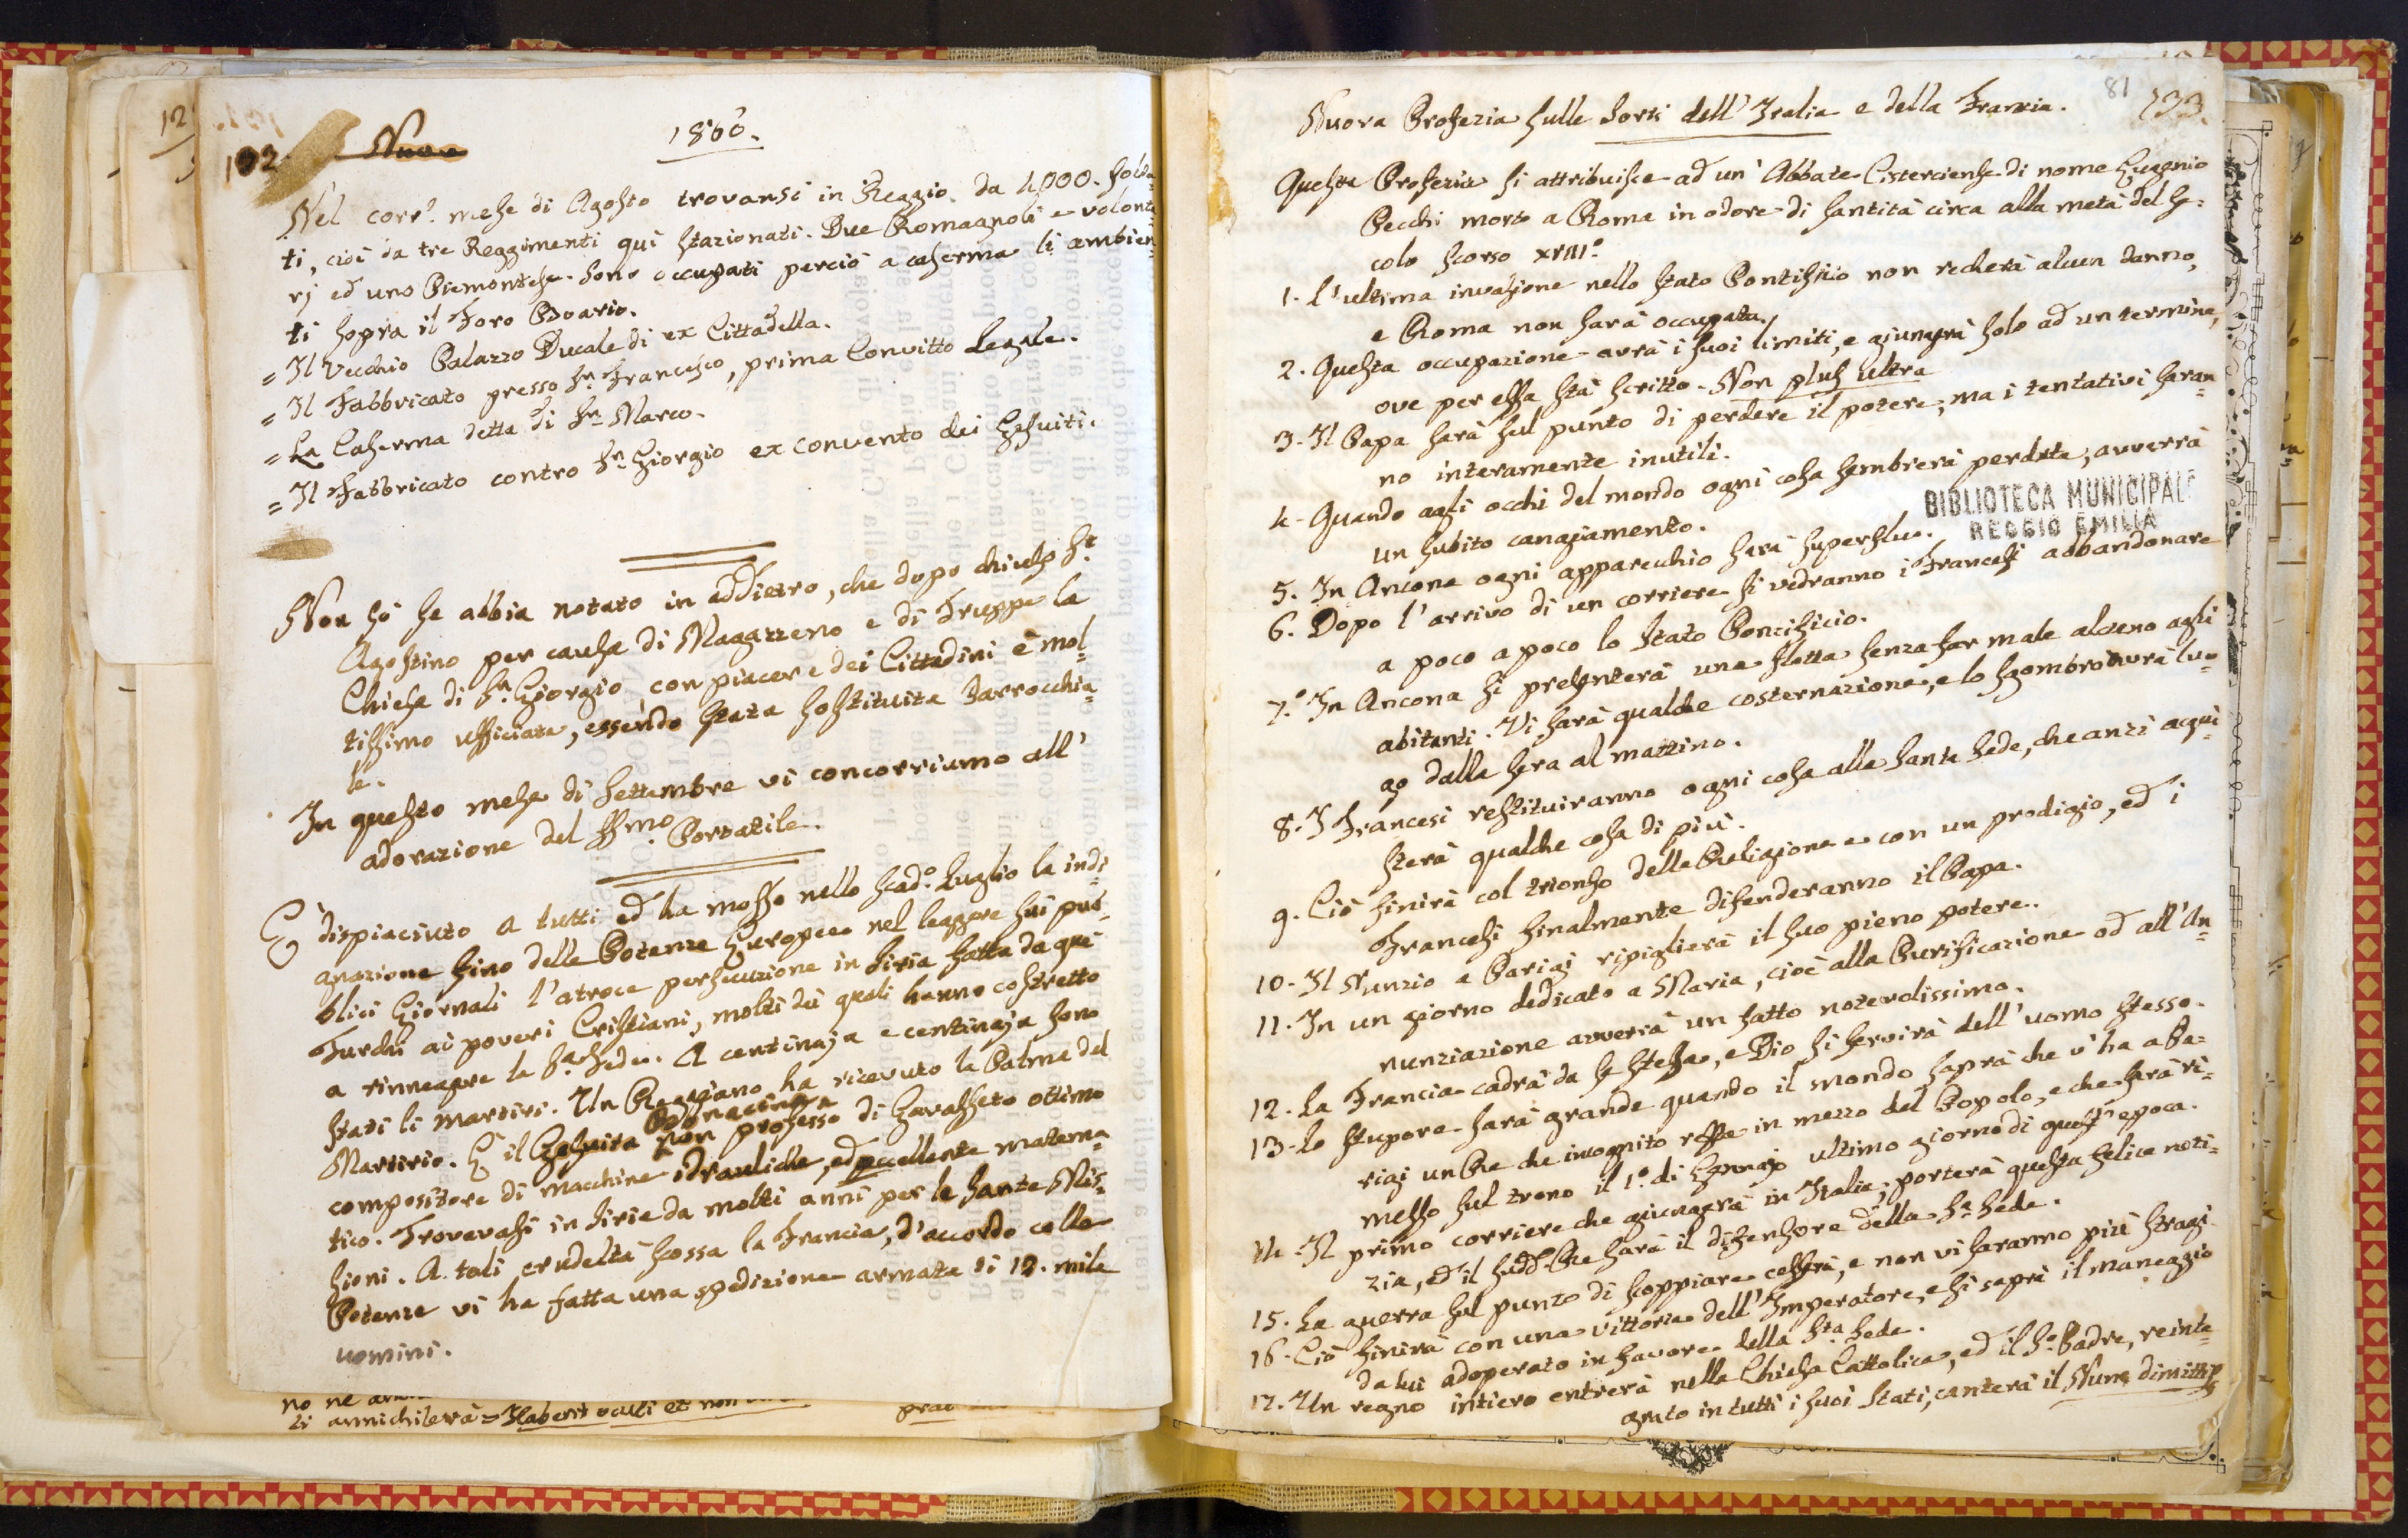 132.
Nuova
1860.
Nel corr.e mese di Agosto trovansi in Reggio da 4000. solda=
ti, cioè da tre Reggimenti quì stazionati. Due Romagnoli e volonta
rj ed uno Piemontese. Sono occupati perciò a caserma li ambien=
ti sopra il Foro Boario.
= Il Vecchio Palazzo Ducale di ex Cittadella.
= Il Fabbricato presso Sn. Francesco, prima Convitto Legale.
= La Caserma detta di Sn. Marco.
= Il Fabbricato contro Sn. Giorgio ex convento dei Gesuiti.
Non sò se abbia notato in addietro, che dopo chiusa St.
Agostino per causa di Magazzeno e di Truppe la
Chiesa di Sn. Giorgio con piacere dei Cittadini è mol=
tissimo ufficiata, essendo stata sostituita Parrocchia=
le.
In questo mese di Settembre vi concorriamo all'
adorazione del SSmo. Portatile.
È dispiaciuto a tutti ed ha mosso nello scad.o Luglio la indi=
gnazione sino delle Potenze Europee nel leggere sui pub=
blici Giornali l'atroce persecuzione in Siria fatta da que'
Turchi ai poveri Cristiani, molti dei quali hanno costretto
a rinnegare la S.a Fede. A centinaja e centinaja sono
stati li martiri. Un Reggiano ha ricevuto la Palma del
Bonacina
Martirio. È il Gesuita non professo di Gavasseto ottimo
compositore di macchine idrauliche, ed eccellente matema=
tico. Trovavasi in Siria da molti anni per le Sante Mis=
sioni. A tali crudeltà scossa la Francia, d'accordo colle
Potenze vi ha fatta una spedizione armata di 12. mila
uomini.
no ne
li annichilerà = Haberit oculi et non
81
133.
Nuova Profezia sulle Sorti dell'Italia e della Francia.
Questa Profezia si attribuisce ad un' Abbate Cisterciense di nome Eugenio
Pecchi morto a Roma in odore di santità circa alla metà del se=
colo scorso XVIII.o
1. L'ultima invasione nello Stato Pontificio non recherà alcun danno,
e Roma non sarà occupata.
2. Questa occupazione avrà i suoi limiti, e giungerà solo ad un termine,
ove per essa stà scritto - Non plus ultra
3. Il Papa sarà sul punto di perdere il potere, ma i tentativi saran=
no interamente inutili.
4. Quando agli occhi del mondo ogni cosa sembrerà perduta, avverrà
un subito cangiamento.
BIBLIOTECA MUNICIPALE
REGGIO EMILIA
5. In Ancona ogni apparecchio sarà superfluo.
6. Dopo l'arrivo di un corriere si vedranno i Francesi abbandonare
a poco a poco lo Stato Pontificio.
7.o In Ancona si presenterà una flotta senza far male alcuno agli
abitanti. Vi sarà qualche costernazione, e lo sgombro avrà luo=
go dalla sera al mattino.
8. I Francesi restituiranno ogni cosa alla Santa Sede, che anzi acqui=
sterà qualche cosa di più.
9. Ciò finirà col trionfo della Religione e con un prodigio, ed i
Francesi finalmente difenderanno il Papa.
10. Il Nunzio a Parigi ripiglierà il suo pieno potere.
11. In un giorno dedicato a Maria, cioè alla Purificazione od all'An=
nunziazione avverrà un fatto notevolissimo.
12. La Francia cadrà da se stessa, e Dio si servirà dell'uomo stesso.
13. Lo stupore sarà grande quando il mondo saprà che v'ha a Pa=
rigi un Re che incognito resta in mezzo del Popolo, e che sarà ri=
messo sul trono il 1.o di Gennajo ultimo giorno di quest'epoca.
14. Il primo corriere che giungerà in Italia, porterà questa felice noti=
zia, ed il sudd. Re sarà il difensore della Sa. Sede.
15. La guerra sul punto di scoppiare cesserà, e non vi saranno più stragi.
16. Ciò finirà con una vittoria dell'Imperatore, e si saprà il maneggio
da lui adoperato in favore della Sta. Sede.
17. Un regno intiero entrerà nella Chiesa Cattolica, ed il S. Padre, reinte=
grato in tutti i suoi Stati, canterà il Nunc dimittis